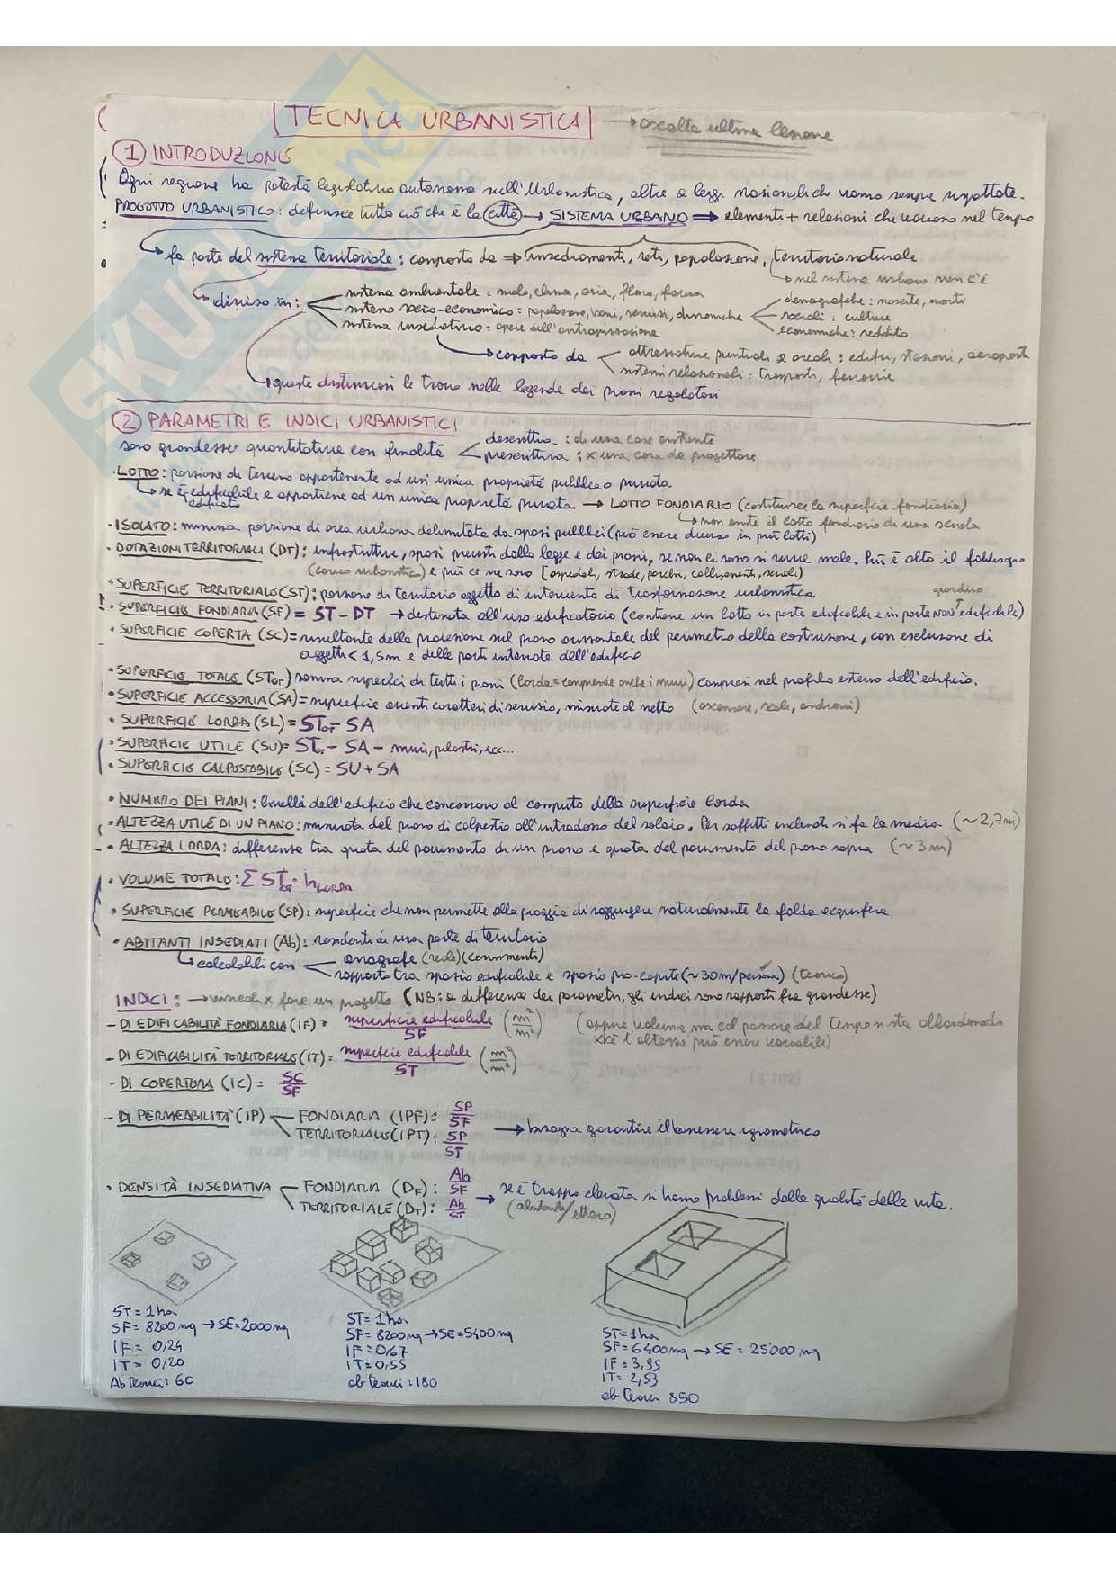 TECNICA URBANISTICA → ascolta ultima lezione
1) INTRODUZIONE
Ogni regione ha potestà legislativa autonoma sull'Urbanistica, oltre a leggi nazionali che vanno sempre rispettate.
PROGETTO URBANISTICO: definisce tutto ciò che è la città → SISTEMA URBANO → elementi + relazioni che nel tempo
fa parte del sistema territoriale: composto da ⇒ insediamenti, reti, popolazione, territorio naturale
nel sistema urbano non c'è
diviso in:
sistema ambientale: suolo, clima, aria, flora, fauna
sistema socio-economico: popolazione, beni, servizi, dinamiche
demografiche: nascite, morti
sociali: culture
economiche: reddito
sistema insediativo: opere dell'antropizzazione
composto da
attrezzature puntuali e areali: edifici, stazioni, aeroporti
sistemi relazionali: trasporti, ferrovie
queste distinzioni le trovo nelle legende dei piani regolatori
2) PARAMETRI E INDICI URBANISTICI
sono grandezze quantitative con finalità
descrittiva: di una cosa esistente
prescrittiva: x una cosa da progettare
· LOTTO: porzione di terreno appartenente ad un'unica proprietà pubblica o privata
se è edificabile e appartiene ad un'unica proprietà privata → LOTTO FONDIARIO (costituisce la superficie fondiaria)
edificato
non esiste il lotto fondiario di una scuola
- ISOLATO: minima porzione di area urbana delimitata da spazi pubblici (può essere diviso in più lotti)
· DOTAZIONI TERRITORIALI (DT): infrastrutture, spazi previsti dalla legge e dai piani, se non ci sono si vive male. Più è alto il fabbisogno
(carico urbanistico) e più ce ne sono [ospedali, strade, parchi, collegamenti, scuole)
· SUPERFICIE TERRITORIALE (ST): porzione di territorio oggetto di intervento di trasformazione urbanistica
giardino
· SUPERFICIE FONDIARIA (SF) = ST - DT → destinata all'uso edificatorio (contiene un lotto in parte edificabile e in parte non edificabile)
· SUPERFICIE COPERTA (SC) = risultante dalla proiezione sul piano orizzontale del perimetro della costruzione, con esclusione di
oggetti < 1,5m e delle parti interrate dell'edificio
· SUPERFICIE TOTALE (STOT) somma superfici di tutti i piani (lorda = comprende anche i muri) compresi nel profilo esterno dell'edificio.
· SUPERFICIE ACCESSORIA (SA) = superficie aventi caratteri di servizio, misurate al netto (ascensore, scale, androni)
· SUPERFICIE LORDA (SL) = STOT - SA
· SUPERFICIE UTILE (SU) = STOT - SA - muri, pilastri, ecc...
· SUPERFICIE CALPESTABILE (SC) = SU + SA
· NUMERO DEI PIANI: livelli dell'edificio che concorrono al computo della superficie lorda
· ALTEZZA UTILE DI UN PIANO: misurata dal piano di calpestio all'intradosso del solaio. Per soffitti inclinati si fa la media (~2,7m)
· ALTEZZA LORDA: differenza tra quota del pavimento di un piano e quota del pavimento del piano sopra (~3m)
· VOLUME TOTALE: Σ STOT · hLORDA
· SUPERFICIE PERMEABILE (SP): superficie che non permette alla pioggia di raggiungere naturalmente la falda acquifera
· ABITANTI INSEDIATI (Ab): residenti di una parte di territorio
calcolabili con
anagrafe (reale) (censimenti)
rapporto tra spazio edificabile e spazio pro-capite (~30m/persona) (teorico)
INDICI: → x fare un progetto (NB: a differenza dei parametri, gli indici sono rapporti fra grandezze)
- DI EDIFICABILITÀ FONDIARIA (IF) = superficie edificabile / SF (m²/m²) (oppure volume ma col passare del tempo si sta abbandonando
xkè l'altezza può essere variabile)
- DI EDIFICABILITÀ TERRITORIALE (IT) = superficie edificabile / ST (m²/m²)
- DI COPERTURA (IC) = SC / SF
- DI PERMEABILITÀ (IP)
FONDIARIA (IPF): SP / SF
TERRITORIALE (IPT): SP / ST
→ bisogna garantire il benessere igrometrico
· DENSITÀ INSEDIATIVA
FONDIARIA (DF): Ab / SF
TERRITORIALE (DT): Ab / ST
→ se è troppo elevata si hanno problemi dalla qualità della vita.
(abitanti/ettaro)
ST = 1 ha
SF = 8200 mq → SE = 2000 mq
IF = 0,24
IT = 0,20
Ab teorici: 60
ST = 1 ha
SF = 8200 mq → SE = 5400 mq
IF = 0,67
IT = 0,55
ab teorici: 180
ST = 1 ha
SF = 6400 mq → SE = 25000 mq
IF = 3,95
IT = 2,53
ab teorici 850